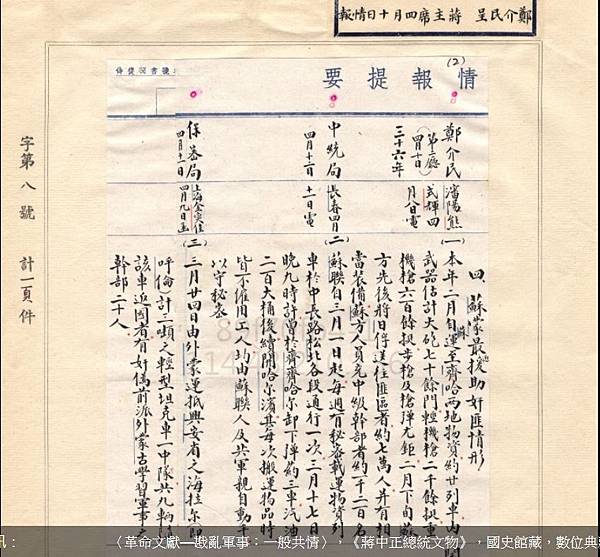 鄭介民呈 蔣主席四月十日情報
(2)
情報提要
鄭介民
第二廳
四月十日
三十六年
瀋陽熊
式輝四
月八日電
四、蘇蒙最援助奸匪情形
(一)本年二月自蘇運至齊哈兩地物資約廿列車內
武器估計大砲七十餘門輕機槍二千餘挺重
機槍六百餘挺步槍及槍彈尤鉅二月下旬蘇
方先後將日俘送往匪區者約七萬人并有相
當裝備蘇方人員充中級幹部者約一千二百名
中統局
四月十二日
長春四月
十一日電
(二)蘇聯自三月一日起每週有秘密載運物資列
車於中長路松北各段通行一次三月十七日
晚九時計曾於齊齊哈尔卸下彈葯三車汽油
二百大桶後續開哈尔濱其每次搬運物品時
皆不僱用工人均由蘇聯人及共軍親自動手
以守秘密
保密局
四月十一日
四月九日
(三)三月廿四日由外蒙運抵興安省之海拉尔即
呼倫計三噸之輕型坦克車一中隊共九輛
該車返國者有奸偽前派外蒙古學習軍事之
幹部二十人
字第八號 計一頁件
訊：
〈革命文獻—戡亂軍事：一般共情〉，《蔣中正總統文物》，國史館藏，數位典